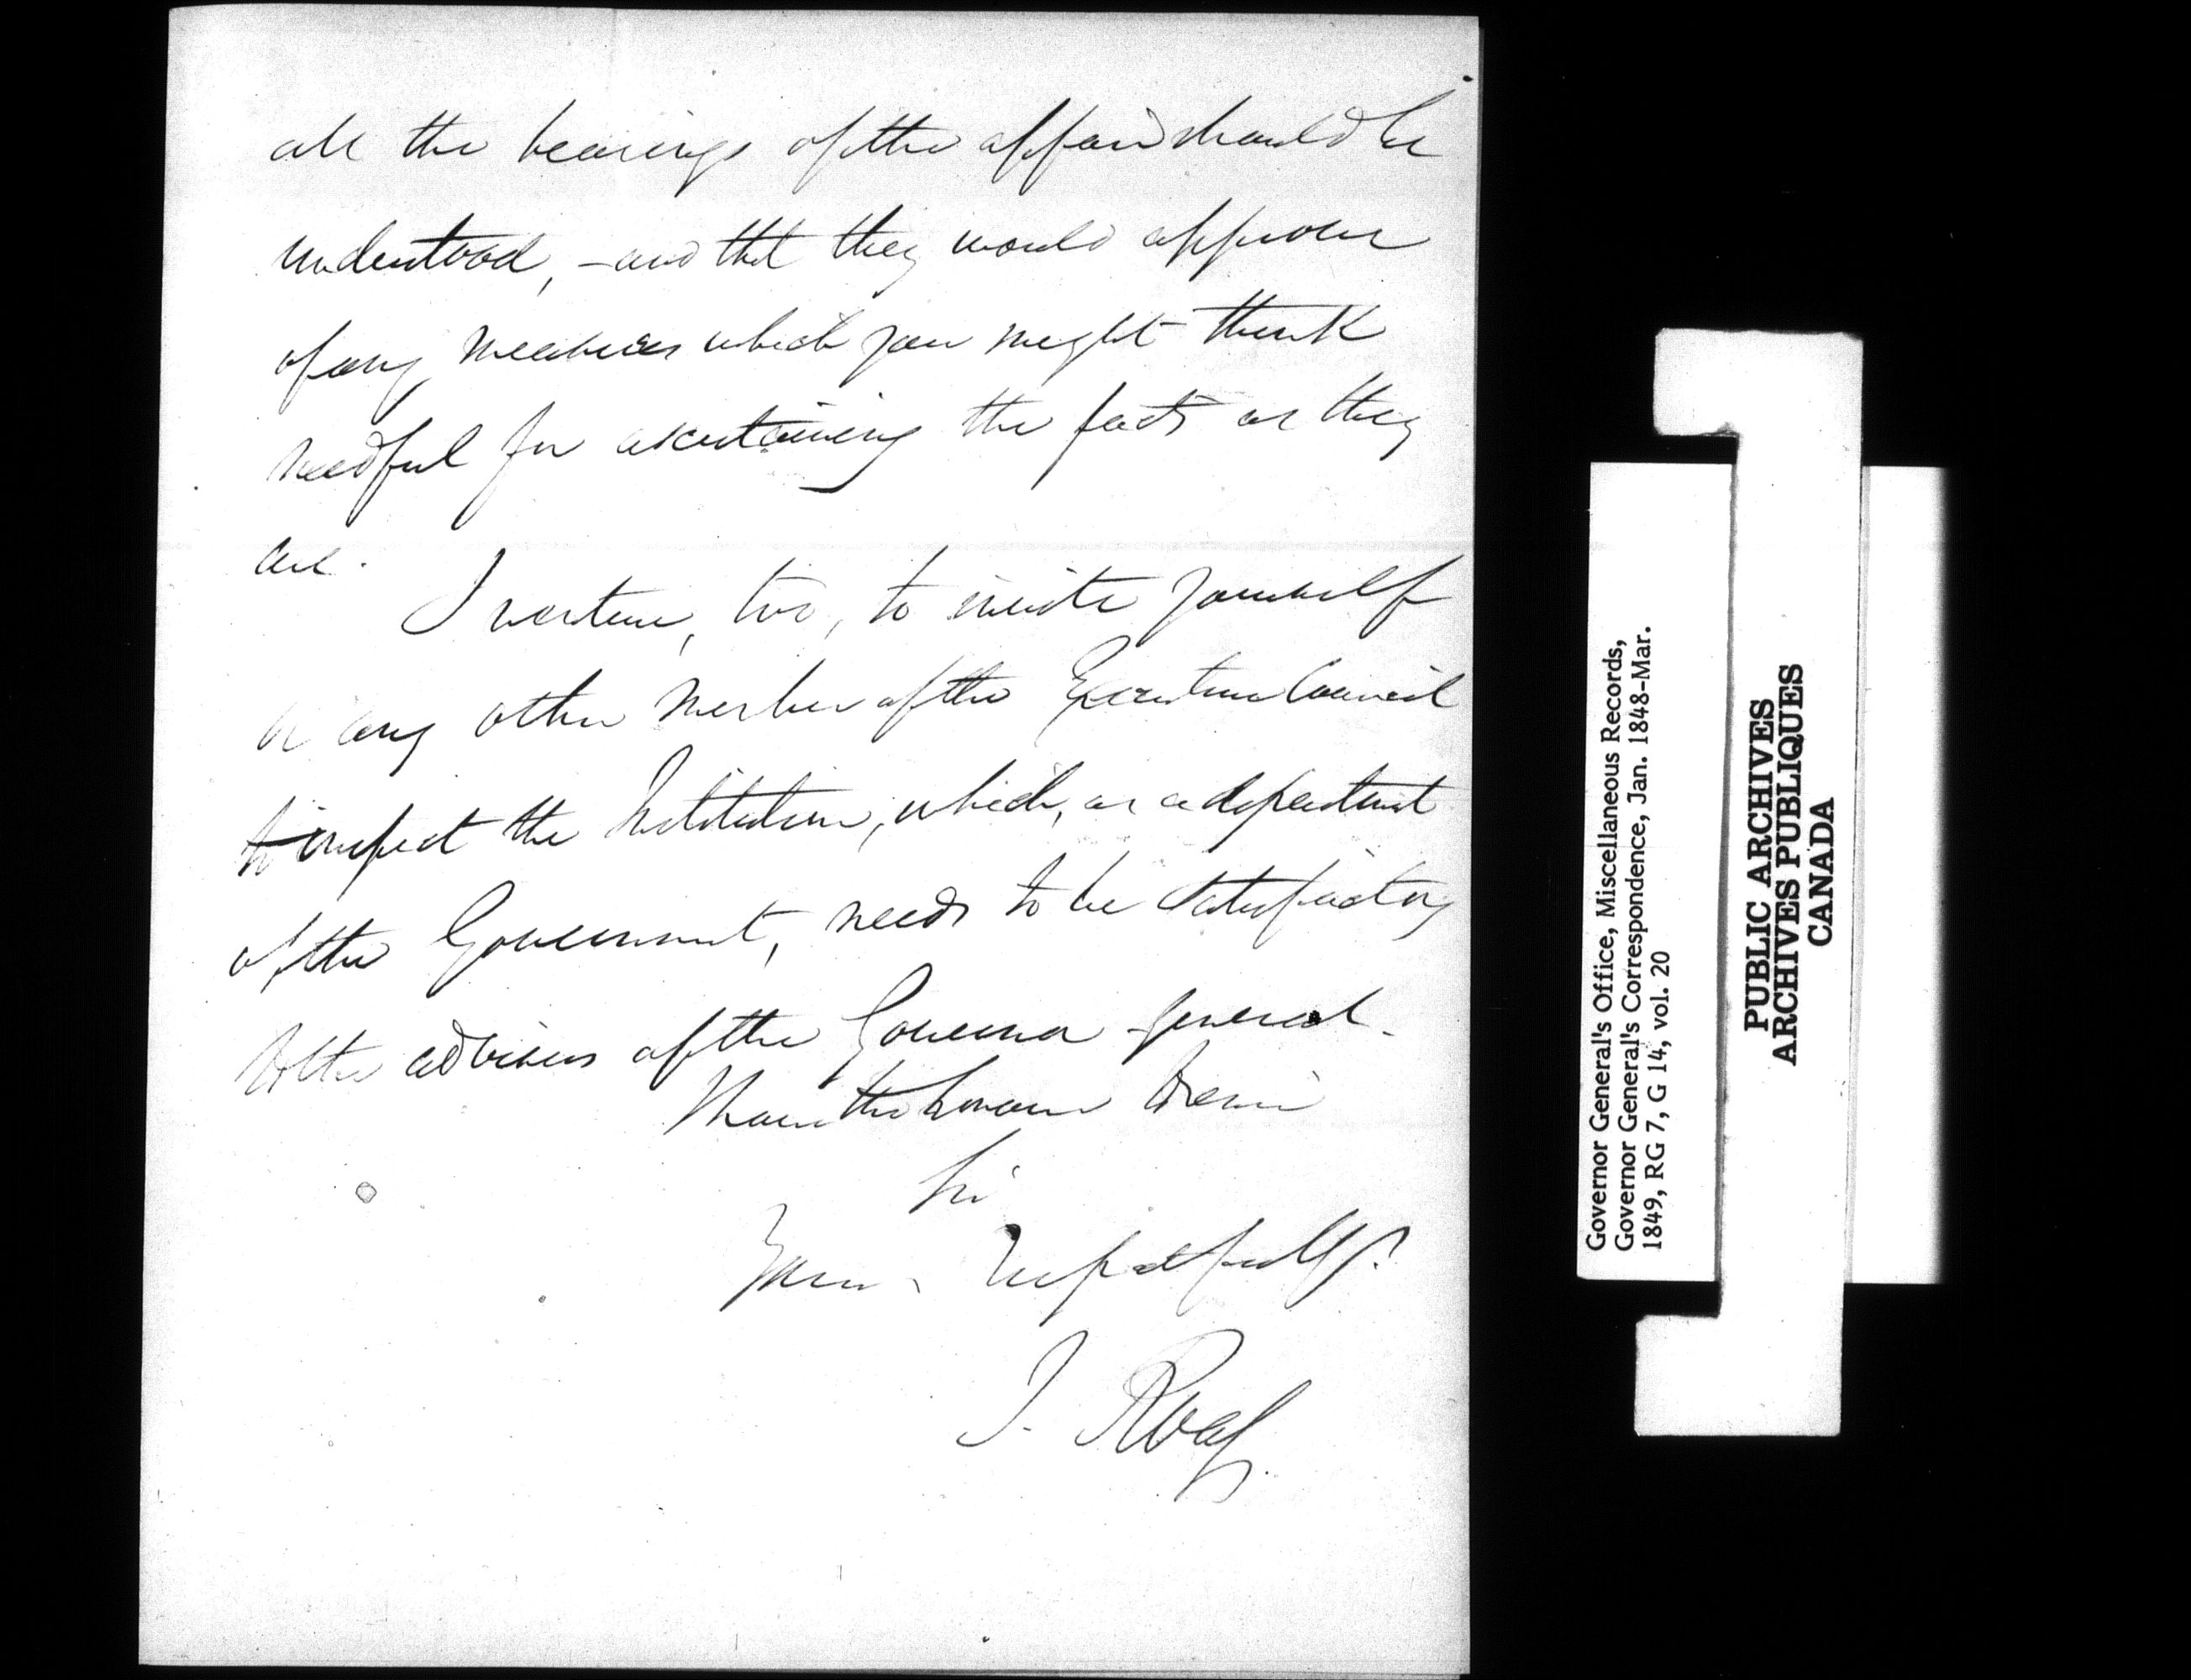 all the bearings of the affair should be
understood, - and that they would approve
of any measures which you might think
needful for ascertaining the facts as they
are.
I venture, too, to invite yourself
or any other member of the Executive Council
to inspect the Institution, which, as a department
of the Government, needs to be satisfactory
to the advisers of the Governor General.
I have the honour to remain
Sir
Yours respectfully
J. Roaf
Governor General's Office, Miscellaneous Records,
Governor General's Correspondence, Jan. 1848-Mar.
1849, RG 7, G 14, vol. 20
PUBLIC ARCHIVES
ARCHIVES PUBLIQUES
CANADA